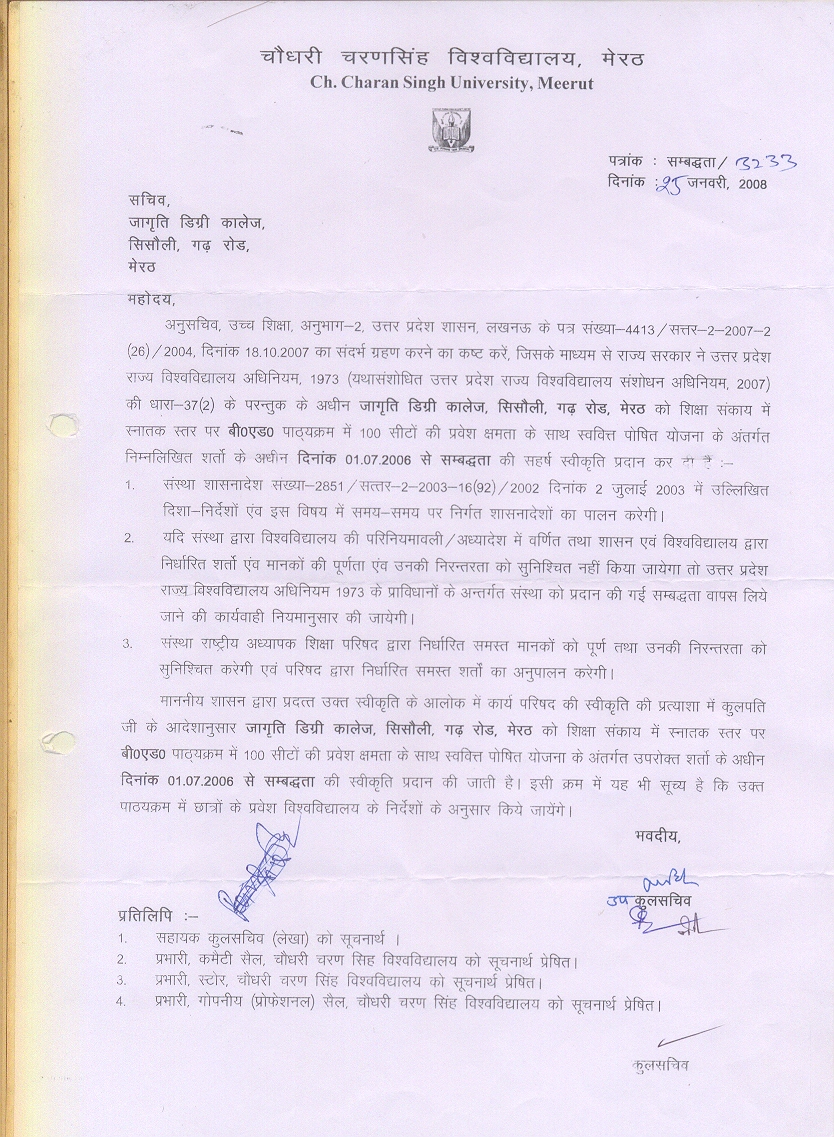 चौधरी चरणसिंह विश्वविद्यालय, मेरठ
Ch. Charan Singh University, Meerut
पत्रांक : सम्बद्धता/ 3233
दिनांक : 25 जनवरी, 2008
सचिव,
जागृति डिग्री कालेज,
सिसौली, गढ़ रोड,
मेरठ
महोदय,
अनुसचिव, उच्च शिक्षा, अनुभाग–2, उत्तर प्रदेश शासन, लखनऊ के पत्र संख्या–4413/सत्तर–2–2007–2
(26)/2004, दिनांक 18.10.2007 का संदर्भ ग्रहण करने का कष्ट करें, जिसके माध्यम से राज्य सरकार ने उत्तर प्रदेश
राज्य विश्वविद्यालय अधिनियम, 1973 (यथासंशोधित उत्तर प्रदेश राज्य विश्वविद्यालय संशोधन अधिनियम, 2007)
की धारा–37(2) के परन्तुक के अधीन जागृति डिग्री कालेज, सिसौली, गढ़ रोड, मेरठ को शिक्षा संकाय में
स्नातक स्तर पर बी0एड0 पाठ्यक्रम में 100 सीटों की प्रवेश क्षमता के साथ स्ववित्त पोषित योजना के अंतर्गत
निम्नलिखित शर्तो के अधीन दिनांक 01.07.2006 से सम्बद्धता की सहर्ष स्वीकृति प्रदान कर दी है :–
1. संस्था शासनादेश संख्या–2851/सत्तर–2–2003–16(92)/2002 दिनांक 2 जुलाई 2003 में उल्लिखित
दिशा–निर्देशों एंव इस विषय में समय–समय पर निर्गत शासनादेशों का पालन करेगी।
2. यदि संस्था द्वारा विश्वविद्यालय की परिनियमावली/अध्यादेश में वर्णित तथा शासन एवं विश्वविद्यालय द्वारा
निर्धारित शर्तो एंव मानकों की पूर्णता एंव उनकी निरन्तरता को सुनिश्चित नहीं किया जायेगा तो उत्तर प्रदेश
राज्य विश्वविद्यालय अधिनियम 1973 के प्राविधानों के अन्तर्गत संस्था को प्रदान की गई सम्बद्धता वापस लिये
जाने की कार्यवाही नियमानुसार की जायेगी।
3. संस्था राष्ट्रीय अध्यापक शिक्षा परिषद द्वारा निर्धारित समस्त मानकों को पूर्ण तथा उनकी निरन्तरता को
सुनिश्चित करेगी एवं परिषद द्वारा निर्धारित समस्त शर्तों का अनुपालन करेगी।
माननीय शासन द्वारा प्रदत्त उक्त स्वीकृति के आलोक में कार्य परिषद की स्वीकृति की प्रत्याशा में कुलपति
जी के आदेशानुसार जागृति डिग्री कालेज, सिसौली, गढ़ रोड, मेरठ को शिक्षा संकाय में स्नातक स्तर पर
बी0एड0 पाठ्यक्रम में 100 सीटों की प्रवेश क्षमता के साथ स्ववित्त पोषित योजना के अंतर्गत उपरोक्त शर्तो के अधीन
दिनांक 01.07.2006 से सम्बद्धता की स्वीकृति प्रदान की जाती है। इसी क्रम में यह भी सूच्य है कि उक्त
पाठयक्रम में छात्रों के प्रवेश विश्वविद्यालय के निर्देशों के अनुसार किये जायेंगे।
भवदीय,
उप कुलसचिव
प्रतिलिपि :–
1. सहायक कुलसचिव (लेखा) को सूचनार्थ ।
2. प्रभारी, कमैटी सैल, चौधरी चरण सिह विश्वविद्यालय को सूचनार्थ प्रेषित।
3. प्रभारी, स्टोर, चौधरी चरण सिंह विश्वविद्यालय को सूचनार्थ प्रेषित।
4. प्रभारी, गोपनीय (प्रोफेशनल) सैल, चौधरी चरण सिंह विश्वविद्यालय को सूचनार्थ प्रेषित।
कुलसचिव